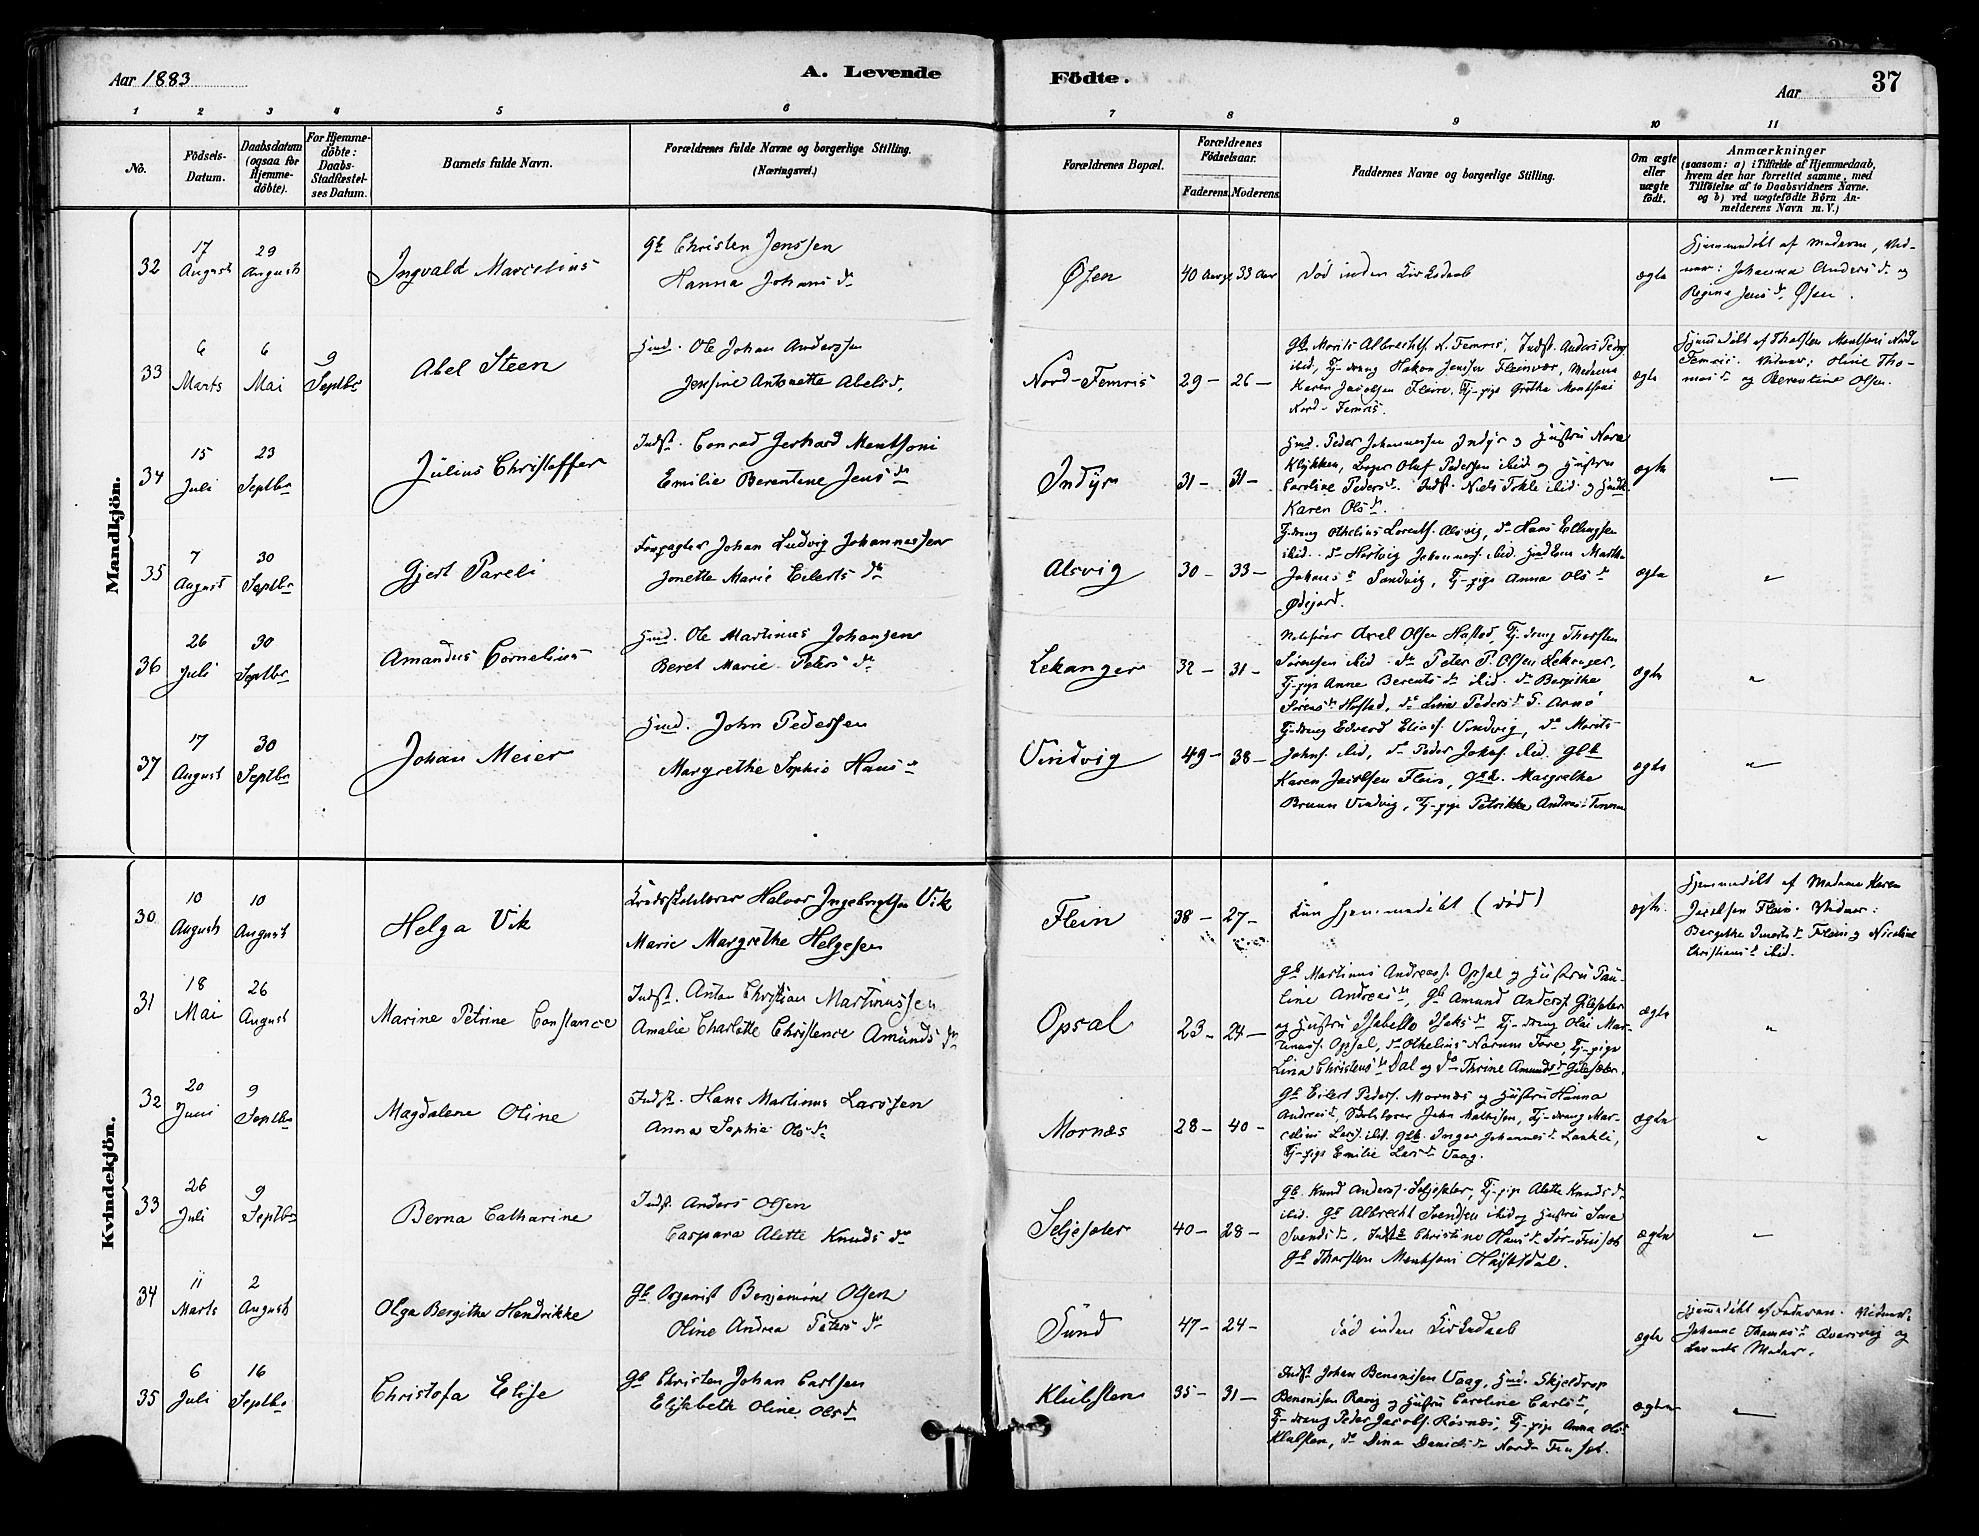 Aar 1883
A. Levende
Födte.
Aar
37
1 2 3 4 5 6 7 8 9 10 11
No.
Födsels-
Datum.
Daabsdatum
(ogsaa for
Hjemme-
döbte).
For Hjemme-
döbte:
Daabs-
Stadfæstel-
ses Datum.
Barnets fulde Navn.
Forældrenes fulde Navne og borgerlige Stilling.
(Næringsvei.)
Forældrenes Bopæl.
Forældrenes
Födselsaar.
Faderens. Moderens.
Faddernes Navne og borgerlige Stilling.
Om ægte
eller
uægte
födt.
Anmærkninger
(saasom: a) i Tilfælde af Hjemmedaab,
hvem der har forrettet samme, med
Tilföielse af to Daabsvidners Navne.
og b) ved uægtefödte Börn An-
melderens Navn m. V.)
Mandkjön.
32
17
August
29
August
Ingvald Marcelius
Gb Christen Jenssen
Hanna Johans dr
Øsen
40 Aar 33 Aar
død inden Kirkedaab
ægte
Hjemmedøbt af Moderen, Vid-
ner: Johanna Anders dr og
Regine Jens dr, Øsen.
33
6
Marts
6
Mai
9
Septbr
Abel Steen
Gmd. Ole Johan Anderssen
Jensine Antonette Abels dr
Nord-Femris
29 - 26 -
Gb Morits Albrechts. N. Femris, Indst. Anders Peders
ibid, Tj-dreng Hakon Jenssen Fleinvær, Madame
Karen Jacobsen Flein, Tj-pige Grethe Mentsoni
Nord-Femris.
ægte
Hjemmedøbt af Thorsten Mentsoni Nord-
Femris. Vidner: Oline Tho-
mas dr og Berentine Olsen.
34
15
Juli
23
Septbr
Julius Christoffer
Indst. Conrad Gerhard Mentsoni
Emilie Berentine Jens dr
Indyr
31 - 31 -
Gmd. Peder Johannessen Indyr og Hustru Nora
Klykken, Oluf Pedersen ibid og Hustru
Caroline Peders dr. Indst. Niels Tokle ibid og
Karen Ols dr.
ægte
"
35
7
August
30
Septbr
Gjert Pareli
Forpagter Johan Ludvig Johannessen
Jonette Marie Eilerts dr
Alsvig
30 - 33 -
Tj-dreng Othelius Lorents. Alsvig, do Hans Ellingsen
ibid. do Hartvig Johanness. ibid. Martha
Johans dr Sandvig, Tj-pige Anna Ols dr
Ødejord.
ægte
"
36
26
Juli
30
Septbr
Amandus Cornelius
Gmd. Ole Martinus Johansen
Beret Marie Peters dr
Lekanger
32 - 31 -
Notefører Axel Olsen Hafstad, Tj-dreng Thorsten
Sørensen ibid. do Peter P. Olsen Lekanger,
Tj-pige Anne Berents dr ibid. do Bergithe
Sørens dr Hafstad, do Lina Peders dr S. Arnö
ægte
"
37
17
August
30
Septbr
Johan Meier
Gmd. John Pedersen
Margrethe Sophie Hans dr
Vindvig
49 - 38 -
Tj-dreng Edvard Elias. Vindvig, do Morits
Johns. ibid, do Peder Johns. ibid. Gbk
Karen Jacobsen Flein, Gbk. Margrethe
Bruun Vindvig, Tj-pige Petrikke Andreas.
ægte
"
Kvindekjön.
30
10
August
10
August
Helga Vik
Kredsskolelærer Halvor Ingebrigtsen Vik
Marie Margrethe Helgesen
Flein
38 - 27 -
Kun hjemmedøbt (død)
ægte
Hjemmedøbt af Madame Karen
Jacobsen Flein. Vidner:
Bergithe dr Flein og Nicoline
Christians dr ibid.
31
18
Mai
26
August
Marine Petrine Constance
Indst. Anton Christian Martinussen
Amalie Charlotte Christence Amunds dr
Opsal
23 - 24 -
Gb Martinus Andreass. Opsal og Hustru Pau-
line Andreas dr, Gb Amund Anders. Gilesæter
og Hustru Isabella Isaks dr, Tj-dreng Olai Mar-
tinuss. Opsal, do Othelius Narum Fore, Tj-pige
Lina Christens dr Dal og do Thrine Amunds dr Gilesæter.
ægte
"
32
20
Juni
9
Septbr
Magdalene Oline
Indst. Hans Martinus Larssen
Anna Sophie Ols dr
Mornæs
28 - 40 -
Gb Eilert Peders. Mornæs og Hustru Hanna
Andreas dr, Skolelærer John Mathisen, Tj-dreng Mar-
celius Lars. ibid. Gbk. Inger Johannes dr Laukli,
Tj-pige Emilie Lars dr Vaag.
ægte
"
33
26
Juli
9
Septbr
Berna Catharine
Indst. Anders Olsen
Caspara Alette Knuds dr
Seljesæter
40 - 28 -
Gb. Knud Anders. Seljesæter, Tj-pige Alette Knuds dr
ibid. Gb Albrecht Svendsen ibid og Hustru
Svends dr, Christine Hans dr Sør-Finsæt
Gb Thorsten Mentsoni Haistdal.
ægte
"
34
11
Marts
2
August
Olga Bergitha Hendrikke
Gb. Organist Benjamin Olsen
Oline Andrea Peters dr
Sund
47 - 24 -
død inden Kirkedaab
ægte
Hjemmedøbt af Faderen. Vidner:
Johanne Thomas dr Qvarsvig og
Barnets Moder.
35
6
Juli
16
Septbr
Christofa Elise
Gb Christen Johan Carlsen
Elisabeth Oline Ols dr
Klubsten
35 - 31 -
Indst. Johan Benonisen Vaag, Gmd. Skjeldrop
Benonisen Røsvig og Hustru Caroline Carls dr,
Tj-dreng Peder Jacobs. Røsnæs, Tj-pige Anna Ols dr
Klubsten, do Dina Daniels dr Nord-Finset.
ægte
"